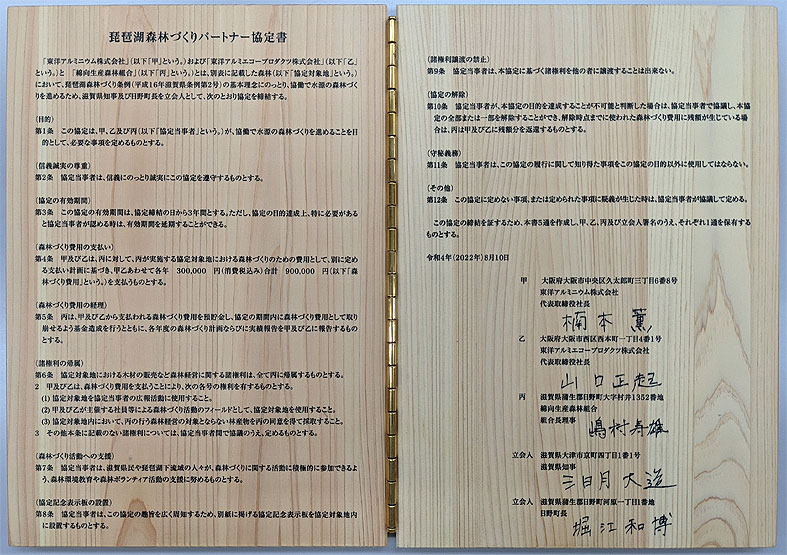 琵琶湖森林づくりパートナー協定書
「東洋アルミニウム株式会社」(以下「甲」という。)および「東洋アルミエコープロダクツ株式会社」(以下「乙」
という。)と 「綿向生産森林組合」(以下「丙」という。)とは、別表に記載した森林(以下「協定対象地」という。)
において、琵琶湖森林づくり条例(平成16年滋賀県条例第2号)の基本理念にのっとり、協働で水源の森林づく
りを進めるため、滋賀県知事及び日野町長を立会人として、次のとおり協定を締結する。
(目的)
第1条 この協定は、甲、乙及び丙(以下「協定当事者」という。)が、協働で水源の森林づくりを進めることを目
的として、必要な事項を定めるものとする。
(信義誠実の尊重)
第2条 協定当事者は、信義にのっとり誠実にこの協定を遵守するものとする。
(協定の有効期間)
第3条 この協定の有効期間は、協定締結の日から3年間とする。ただし、協定の目的達成上、特に必要がある
と協定当事者が認める時は、有効期間を延期することができる。
(森林づくり費用の支払い)
第4条 甲及び乙は、丙に対して、丙が実施する協定対象地における森林づくりのための費用として、別に定め
る支払い計画に基づき、甲乙あわせて各年 300,000 円(消費税込み)合計 900,000 円(以下「森
林づくり費用」という。)を支払うものとする。
(森林づくり費用の経理)
第5条 丙は、甲及び乙から支払われる森林づくり費用を預貯金し、協定の期間内に森林づくり費用として取り
崩せるよう基金造成を行うとともに、各年度の森林づくり計画ならびに実績報告を甲及び乙に報告するもの
とする。
(諸権利の帰属)
第6条 協定対象地における木材の販売など森林経営に関する諸権利は、全て丙に帰属するものとする。
2 甲及び乙は、森林づくり費用を支払うことにより、次の各号の権利を有するものとする。
(1) 協定対象地を協定当事者の広報活動に使用すること。
(2) 甲及び乙が主催する社員等による森林づくり活動のフィールドとして、協定対象地を使用すること。
(3) 協定対象地内において、丙の行う森林経営の対象とならない林産物を丙の同意を得て採取すること。
3 その他本条に記載のない諸権利については、協定当事者間で協議のうえ、定めるものとする。
(森林づくり活動への支援)
第7条 協定当事者は、滋賀県民や琵琶湖下流域の人々が、森林づくりに関する活動に積極的に参加できるよ
う、森林環境教育や森林ボランティア活動の支援に努めるものとする。
(協定記念表示板の設置)
第8条 協定当事者は、この協定の趣旨を広く周知するため、別紙に掲げる協定記念表示板を協定対象地内
に設置するものとする。
(諸権利譲渡の禁止)
第9条 協定当事者は、本協定に基づく諸権利を他の者に譲渡することは出来ない。
(協定の解除)
第10条 協定当事者が、本協定の目的を達成することが不可能と判断した場合は、協定当事者で協議し、本協
定の全部または一部を解除することができ、解除時点までに使われた森林づくり費用に残額が生じている場
合は、丙は甲及び乙に残額分を返還するものとする。
(守秘義務)
第11条 協定当事者は、この協定の履行に関して知り得た事項をこの協定の目的以外に使用してはならない。
(その他)
第12条 この協定に定めない事項、または定められた事項に疑義が生じた時は、協定当事者が協議して定める。
この協定の締結を証するため、本書5通を作成し、甲、乙、丙及び立会人署名のうえ、それぞれ1通を保有する
ものとする。
令和4年(2022年)8月10日
甲 大阪府大阪市中央区久太郎町三丁目6番8号
東洋アルミニウム株式会社
代表取締役社長
楠本 薫
乙 大阪府大阪市西区西本町一丁目4番1号
東洋アルミエコープロダクツ株式会社
代表取締役社長
山口正起
丙 滋賀県蒲生郡日野町大字村井1352番地
綿向生産森林組合
組合長理事
嶋村寿雄
立会人 滋賀県大津市京町四丁目1番1号
滋賀県知事
三日月大造
立会人 滋賀県蒲生郡日野町河原一丁目1番地
日野町長
堀江和博